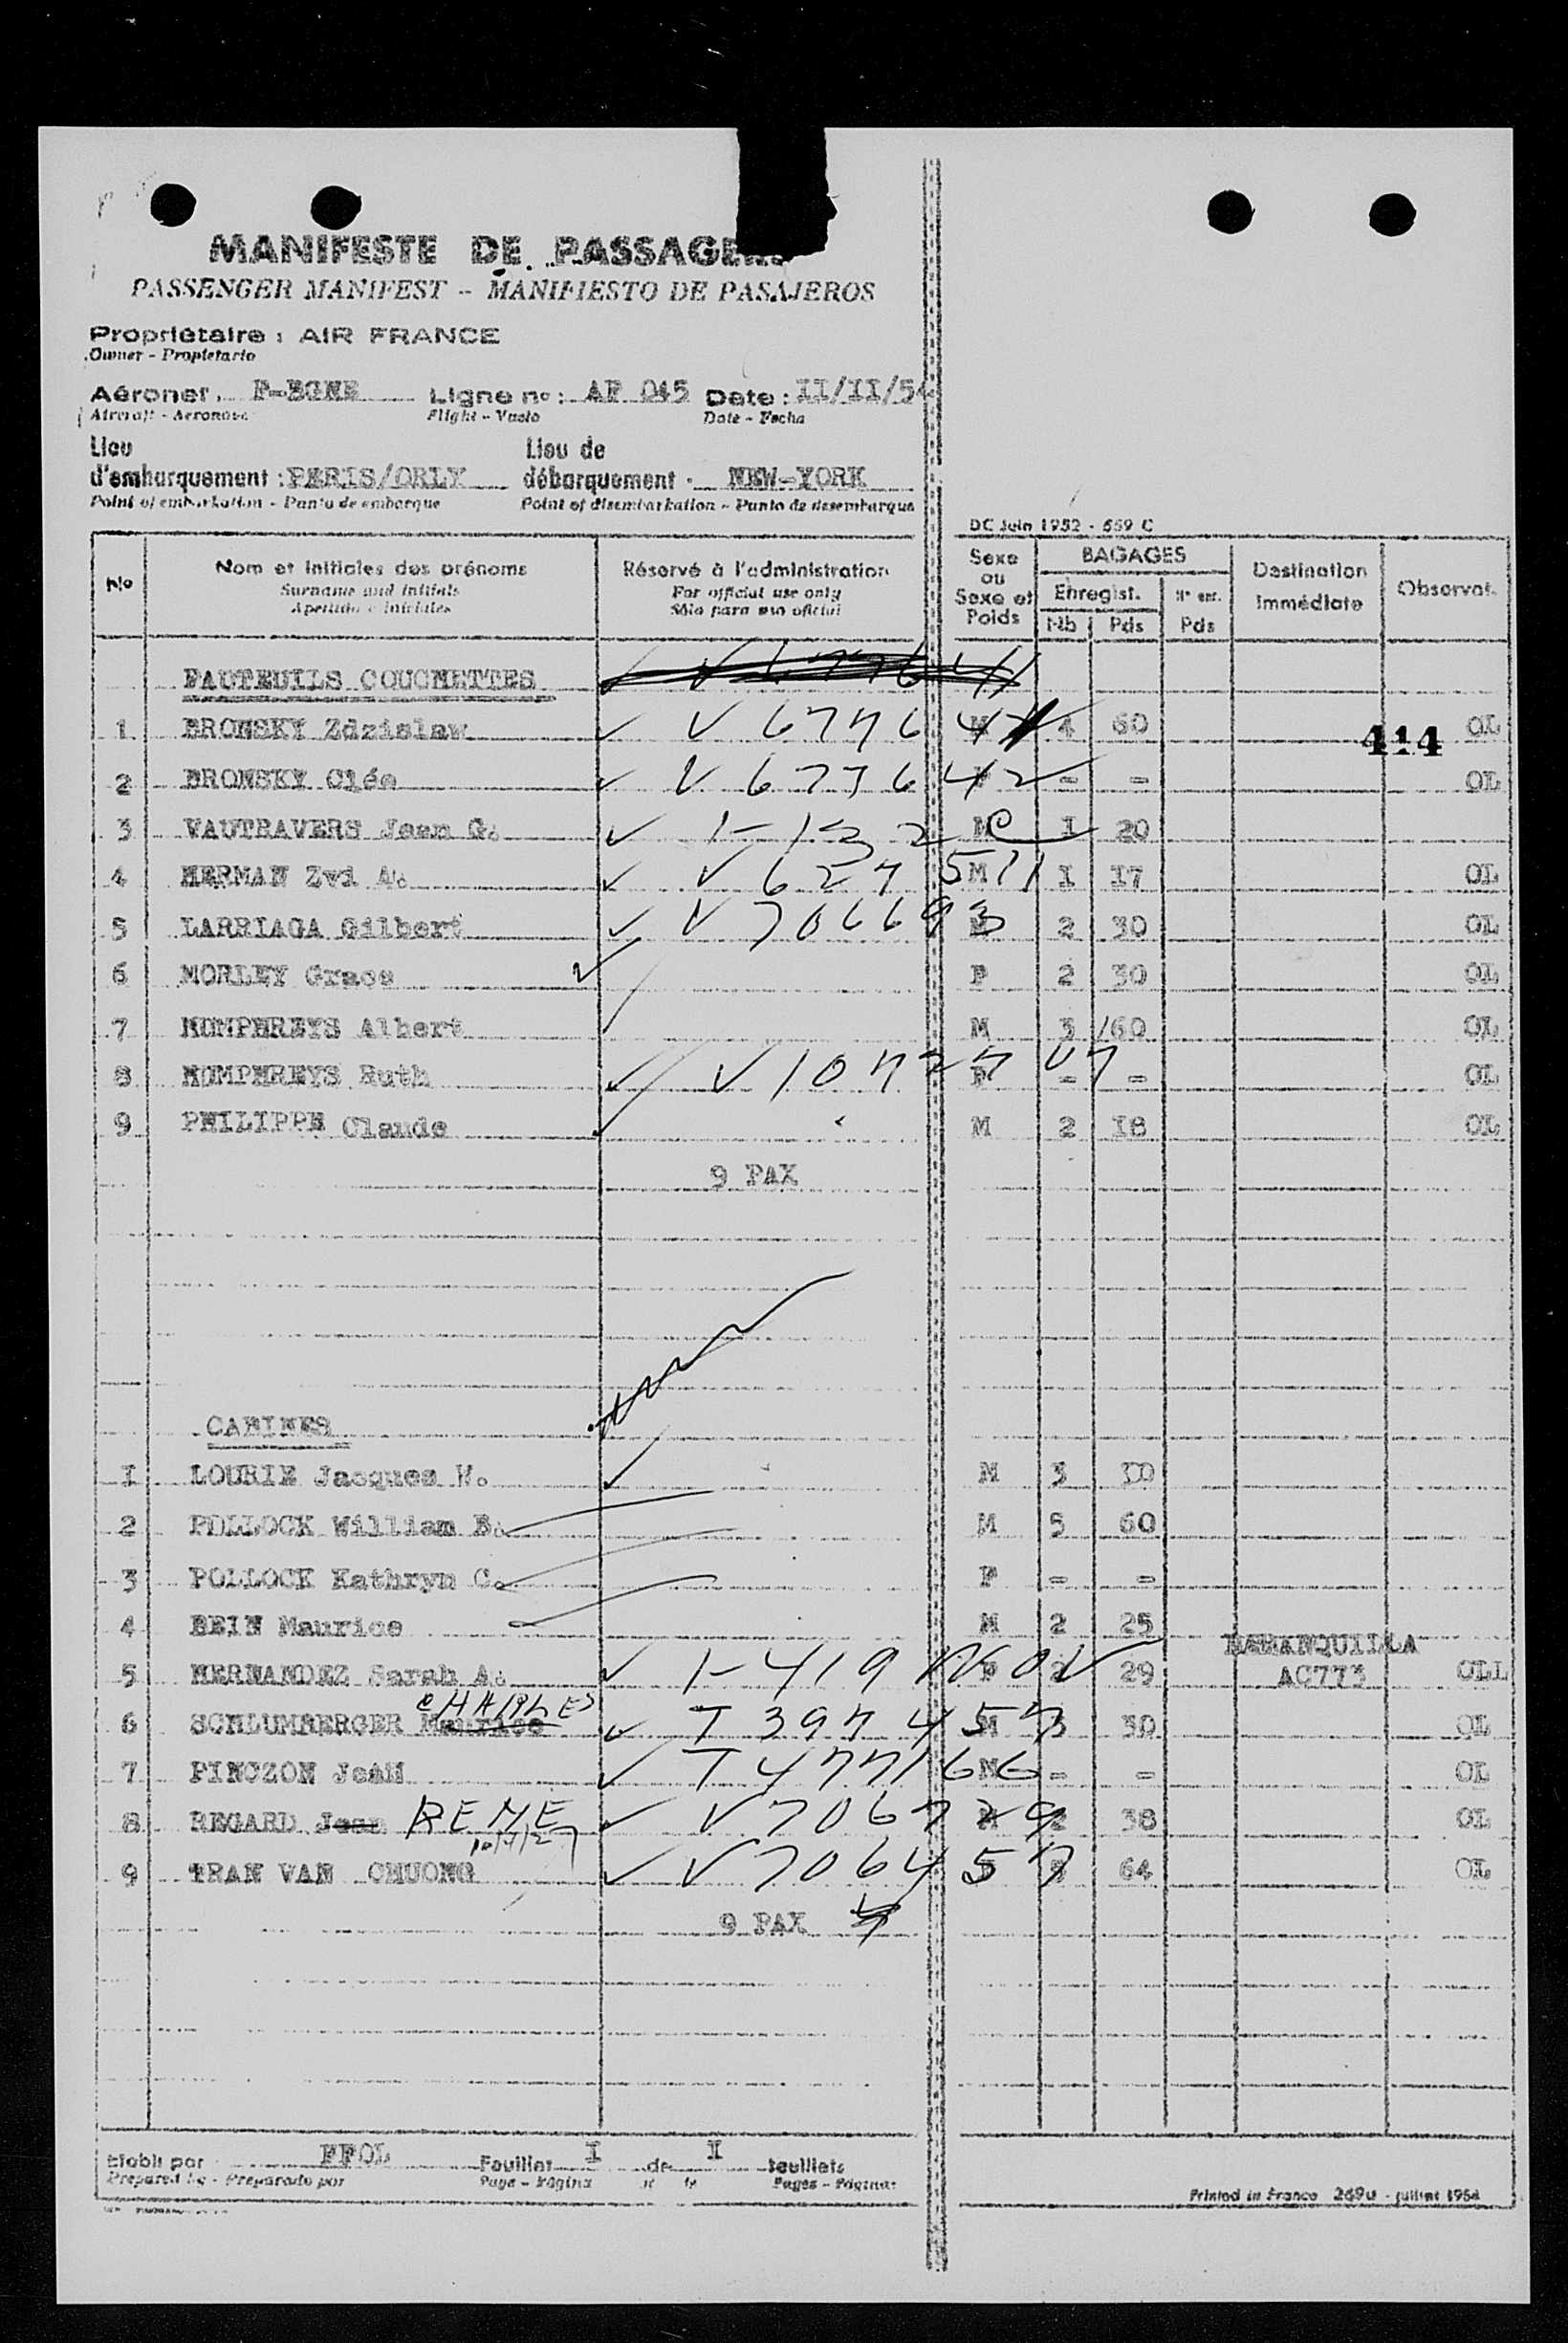 MANIFESTE DE PASSAGE
PASSENGER MANIFEST - MANIFIESTO DE PASAJEROS
Propriétaire : AIR FRANCE
Owner - Propietario
Aéronef. F-BGNE Ligne no : AF 045 Date : II/II/54
Aircraft - Aeronave Flight - Vuelo Date - Fecha
Lieu Lieu de
d'embarquement : PERIS/ORLY débarquement . NEW-YORK
Point of embarkation - Punto de embarque Point of disembarkation - Punto de desembarque
DC Juin 1952 - 559 C
No Nom et initiales des prénoms Réservé à l'administration Sexe ou Sexe et Poids BAGAGES Destination Immédiate Observat.
Surname and initials For official use only Enregist. N° enr.
Apellido e iniciales Sólo para uso oficial Nb Pds Pds
FAUTEUILS COUCHETTES
1 BRONSKY Zdzislaw V 677641 M 4 60 OL
414
2 BRONSKY Clée V 677642 F - - OL
3 VAUTRAVERS Jean G. M I 20
4 HERMAN Zvi A. V 627511 M I 17 OL
5 LARRIAGA Gilbert V 706693 M 2 30 OL
6 MORLEY Grace F 2 30 OL
7 HOMPHREYS Albert M 3 60 OL
8 HOMPHREYS Ruth F - - OL
9 PHILIPPE Claude M 2 18 OL
9 PAX
CABINES
I LOURIE Jacques W. M 3
2 POLLOCK William B. M 5 60
3 POLLOCK Kathryn C. F - -
4 BEIN Maurice M 2 25
BARANQUILLA
5 HERNANDEZ Sarah A. F 2 29 AC773 OLL
CHARLES
6 SCHLUMBERGER Maurice T 397457 M 3 30 OL
7 PINCZON JeaN T 477166 M - - OL
8 REGARD Jean RENE V 706729 M 2 38 OL
9 TRAN VAN CHUONG V 706457 64 OL
9 PAX
Etabli par FFOL Feuillet I de I feuillets
Prepared by - Preparado por Page - Página Pages - Páginas
Printed in France 269u - juillet 1954